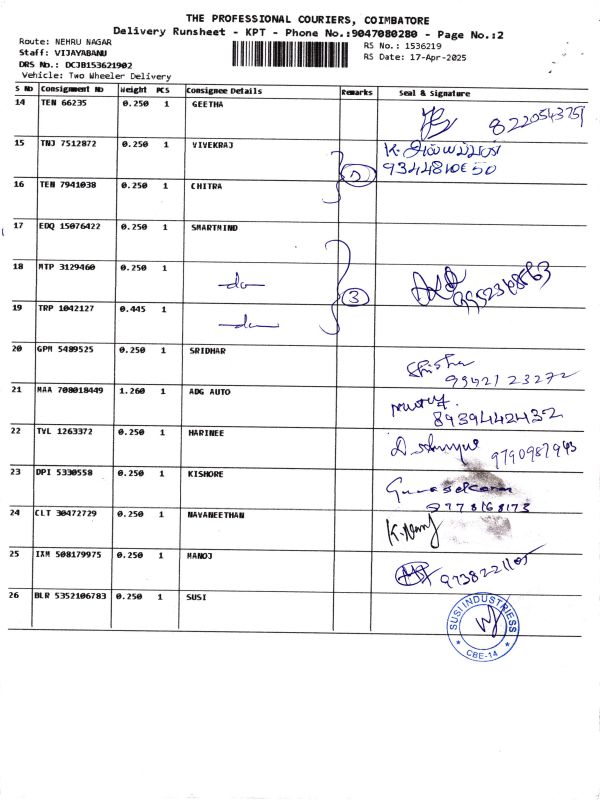 THE PROFESSIONAL COURIERS, COIMBATORE
Delivery Runsheet - KPT - Phone No.:9047080280 - Page No.:2
Route: NEHRU NAGAR
Staff: VIJAYABANU
DRS No.: DCJB153621902
Vehicle: Two Wheeler Delivery
RS No.: 1536219
RS Date: 17-Apr-2025
S No Consignment No Weight PCS Consignee Details Remarks Seal & Signature
14 TEN 66235 0.250 1 GEETHA
15 TNJ 7512872 0.250 1 VIVEKRAJ
16 TEN 7941038 0.250 1 CHITRA
17 EDQ 15076422 0.250 1 SMARTMIND
18 MTP 3129460 0.250 1 do
3
19 TRP 1042127 0.445 1 do
20 GPM 5489525 0.250 1 SRIDHAR
99421 23272
21 MAA 708018449 1.260 1 ADG AUTO
8939442432
22 TVL 1263372 0.250 1 HARINEE
9790987943
23 DPI 5330558 0.250 1 KISHORE
Gunasekaran
9778168173
24 CLT 30472729 0.250 1 NAVANEETHAN
25 IXM 508179975 0.250 1 MANOJ
26 BLR 5352106783 0.250 1 SUSI
SUSI INDUSTRIESS
CBE-14